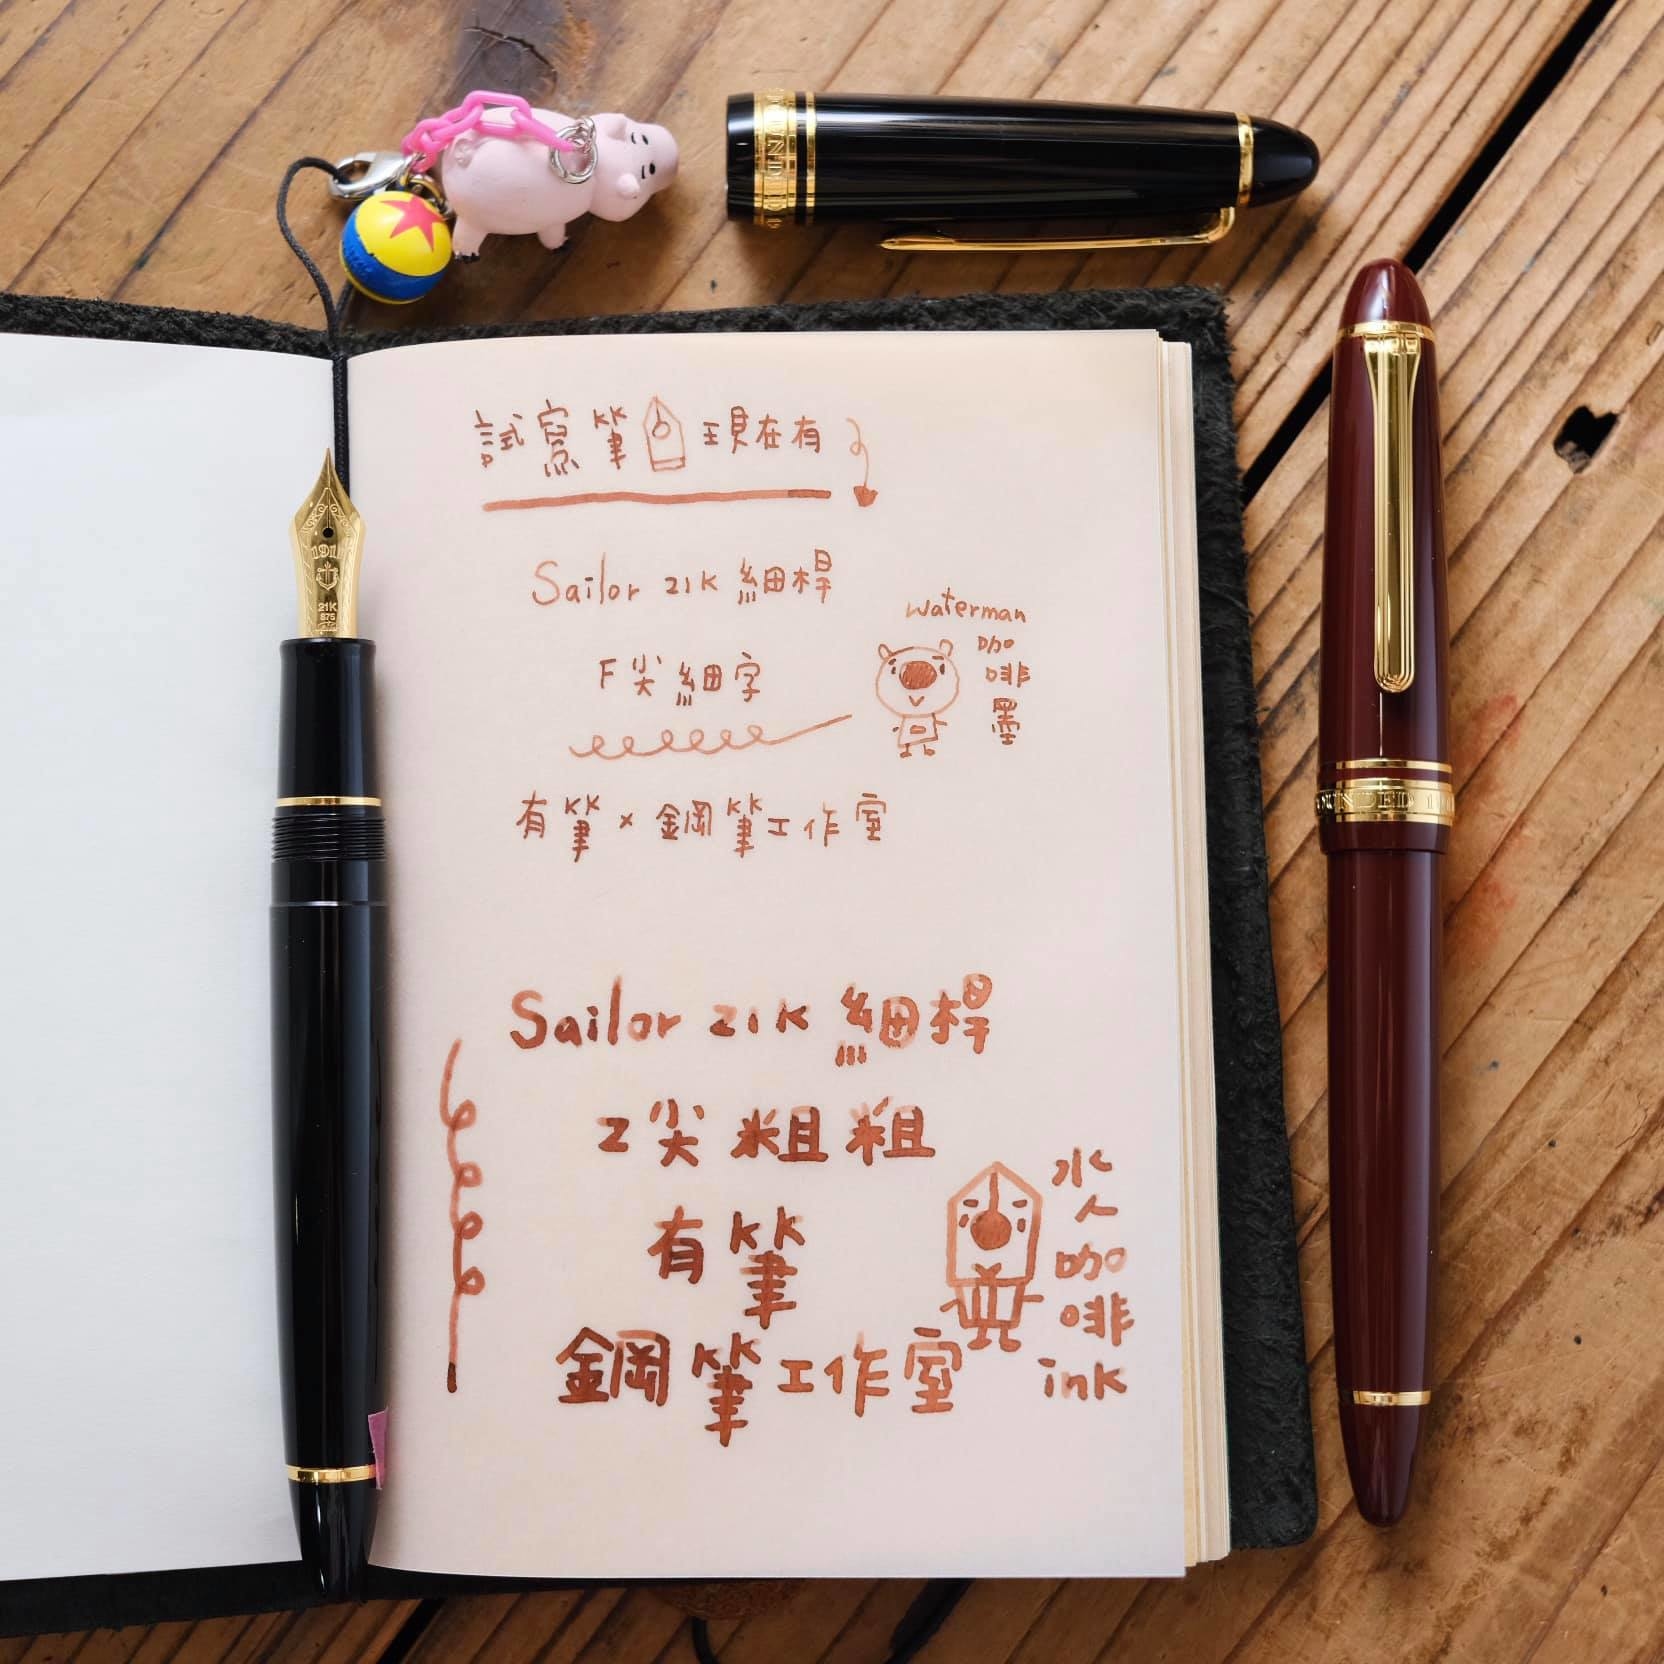 試寫筆 現在有
Sailor 21K 細桿
F尖 細字
waterman
咖
啡
墨
有筆 × 鋼筆工作室
Sailor 21K 細桿
Z尖 粗粗
有筆
鋼筆工作室
水
人
咖
啡
ink
1911
21K
875
OUNDED 1